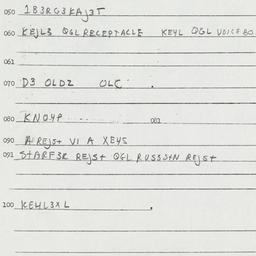 050 1B3RG3KAJ3T
060 KEJL3 OGL RECEPTACLE KEYL OGL VOICE BO
061
070 D3 OLD2 OLC .
080 KNO4P 082
090 A REJST VI A XEYS
091 STARF3R REJST OGL RUSSSTN REJST
100 KEHL3XL .